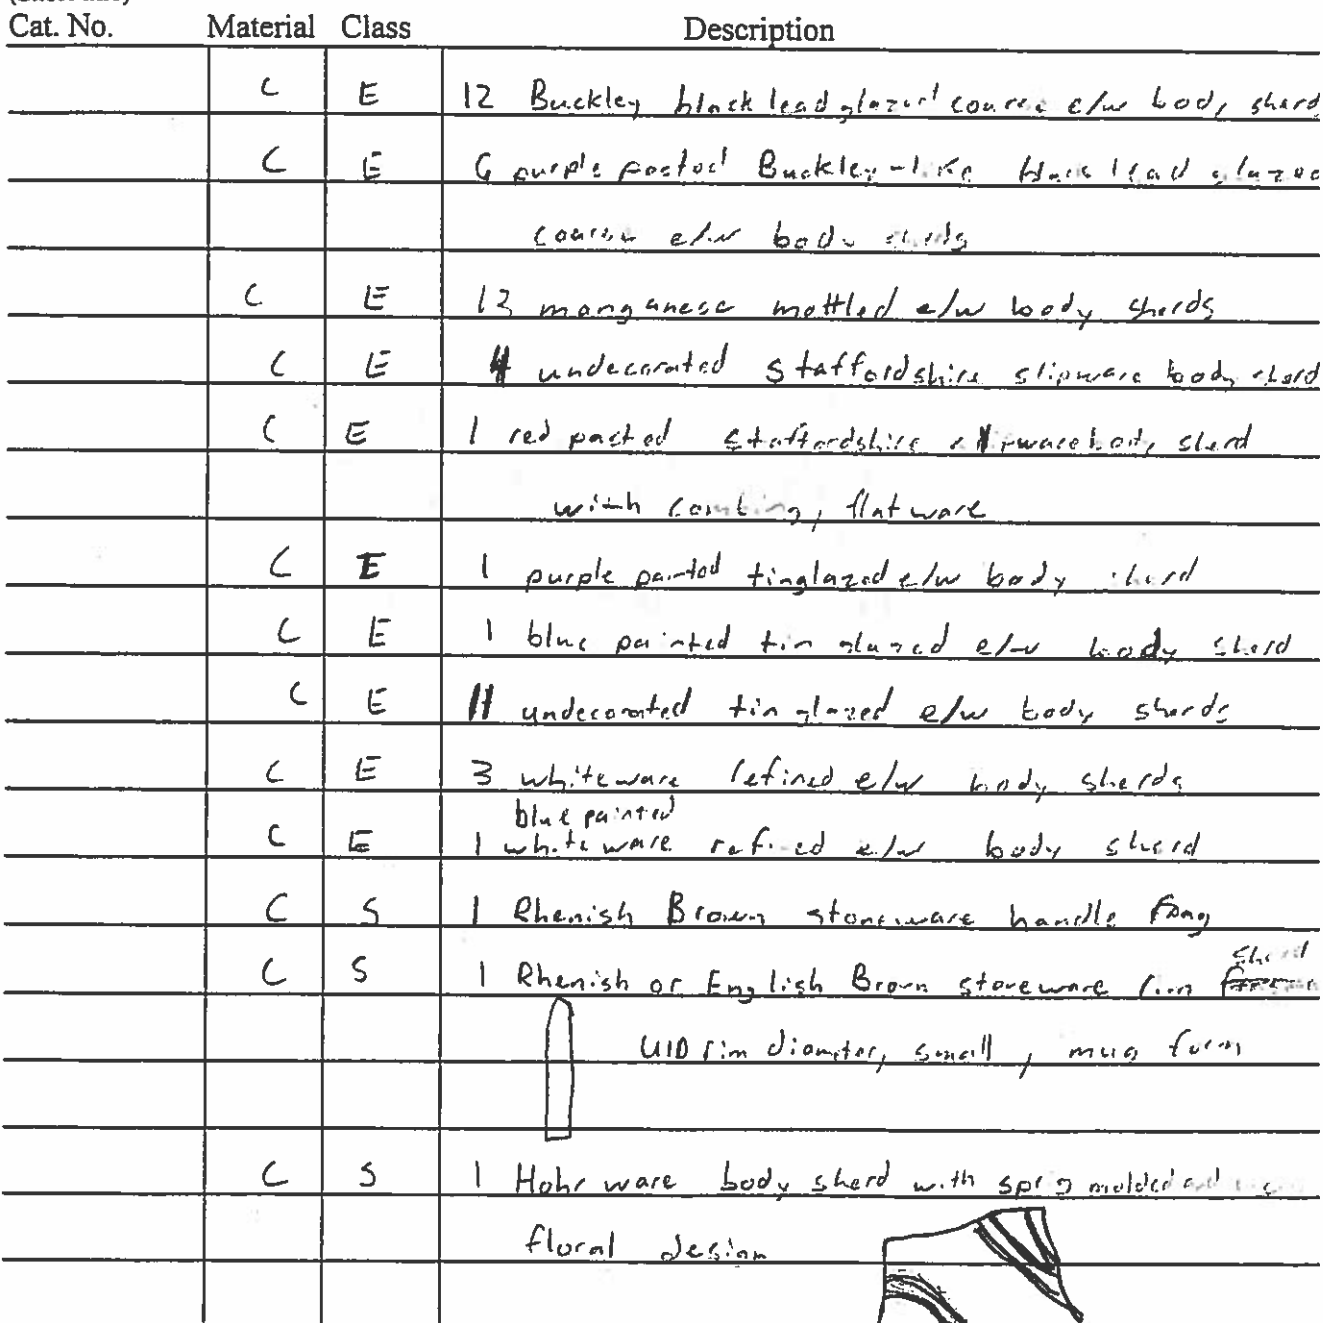 Cat. No. Material Class Description
C E 12 Buckley black lead glazed coarse e/w body sherd
C E 6 purple pasted Buckley-like black lead glazed
coarse e/w body sherds
C E 13 manganese mottled e/w body sherds
C E 4 undecorated Staffordshire slipware body sherd
C E 1 red pasted Staffordshire slipware body sherd
with combing, flatware
C E 1 purple painted tinglazed e/w body sherd
C E 1 blue painted tin glazed e/w body sherd
C E 11 undecorated tin glazed e/w body sherds
C E 3 whiteware refined e/w body sherds
blue painted
C E 1 whiteware refined e/w body sherd
C S 1 Rhenish Brown stoneware handle frag
sherd
C S 1 Rhenish or English Brown stoneware rim
UID rim diameter, small, mug form
C S 1 Hohr ware body sherd with sprig molded
floral design